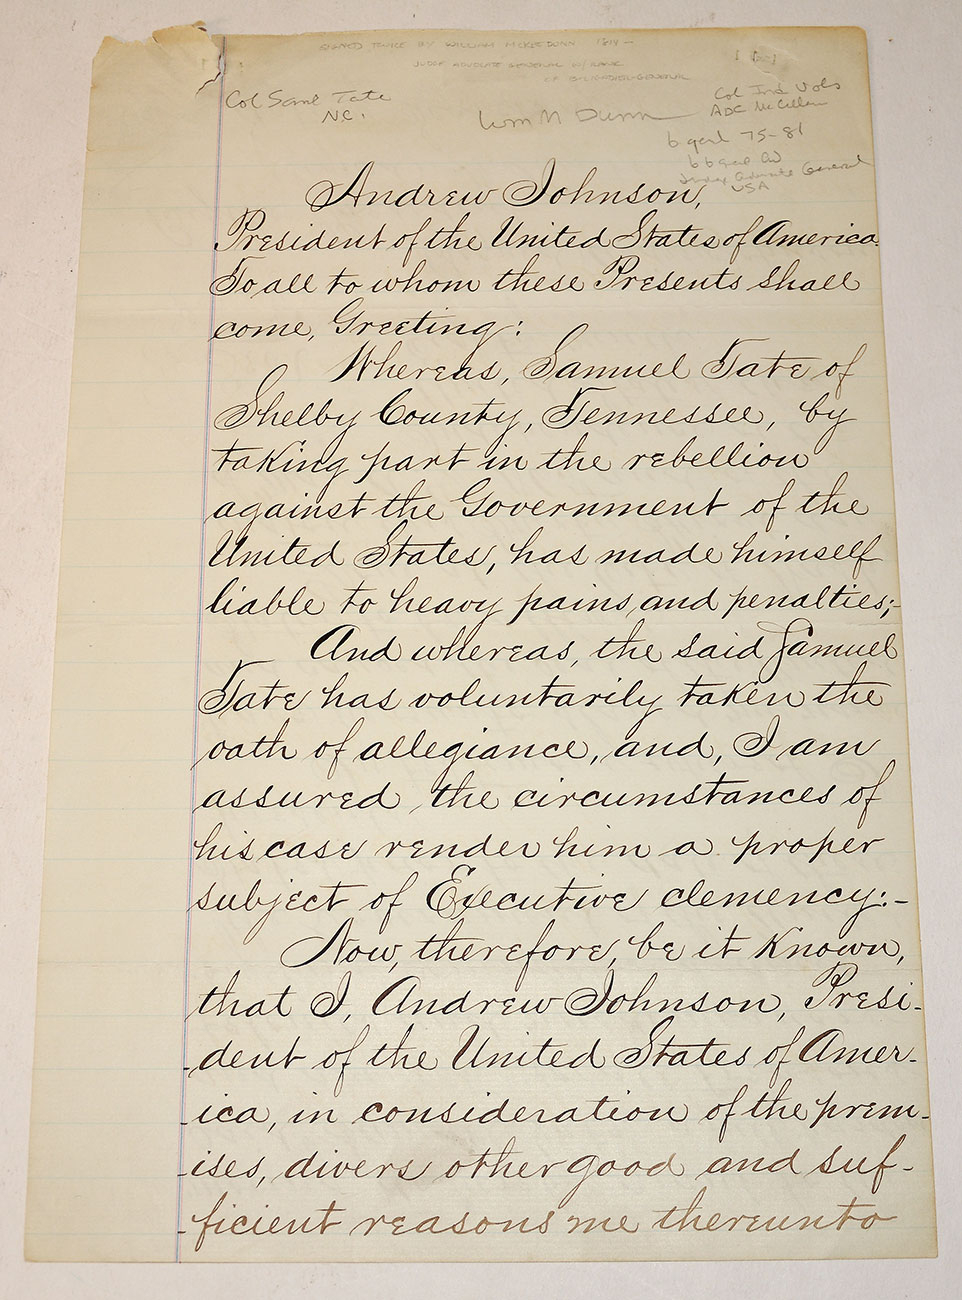 SIGNED TWICE BY WILLIAM MCKEE DUNN 1814 -
JUDGE ADVOCATE GENERAL W/ RANK
OF BRIGADIER-GENERAL
Col Saml Tate
N.C.
Wm M Dunn
Col Ind Vols
ADC McClellan
b genl 75-81
General
USA
Andrew Johnson,
President of the United States of America.
To all to whom these Presents shall
come, Greeting:
Whereas, Samuel Tate of
Shelby County, Tennessee, by
taking part in the rebellion
against the Government of the
United States, has made himself
liable to heavy pains, and penalties;-
And whereas, the said Samuel
Tate has voluntarily taken the
oath of allegiance, and, I am
assured, the circumstances of
his case render him a proper
subject of Executive clemency:-
Now, therefore, be it known,
that I, Andrew Johnson, Presi-
-dent of the United States of Amer-
-ica, in consideration of the prem-
-ises, divers other good and suf-
-ficient reasons me thereunto